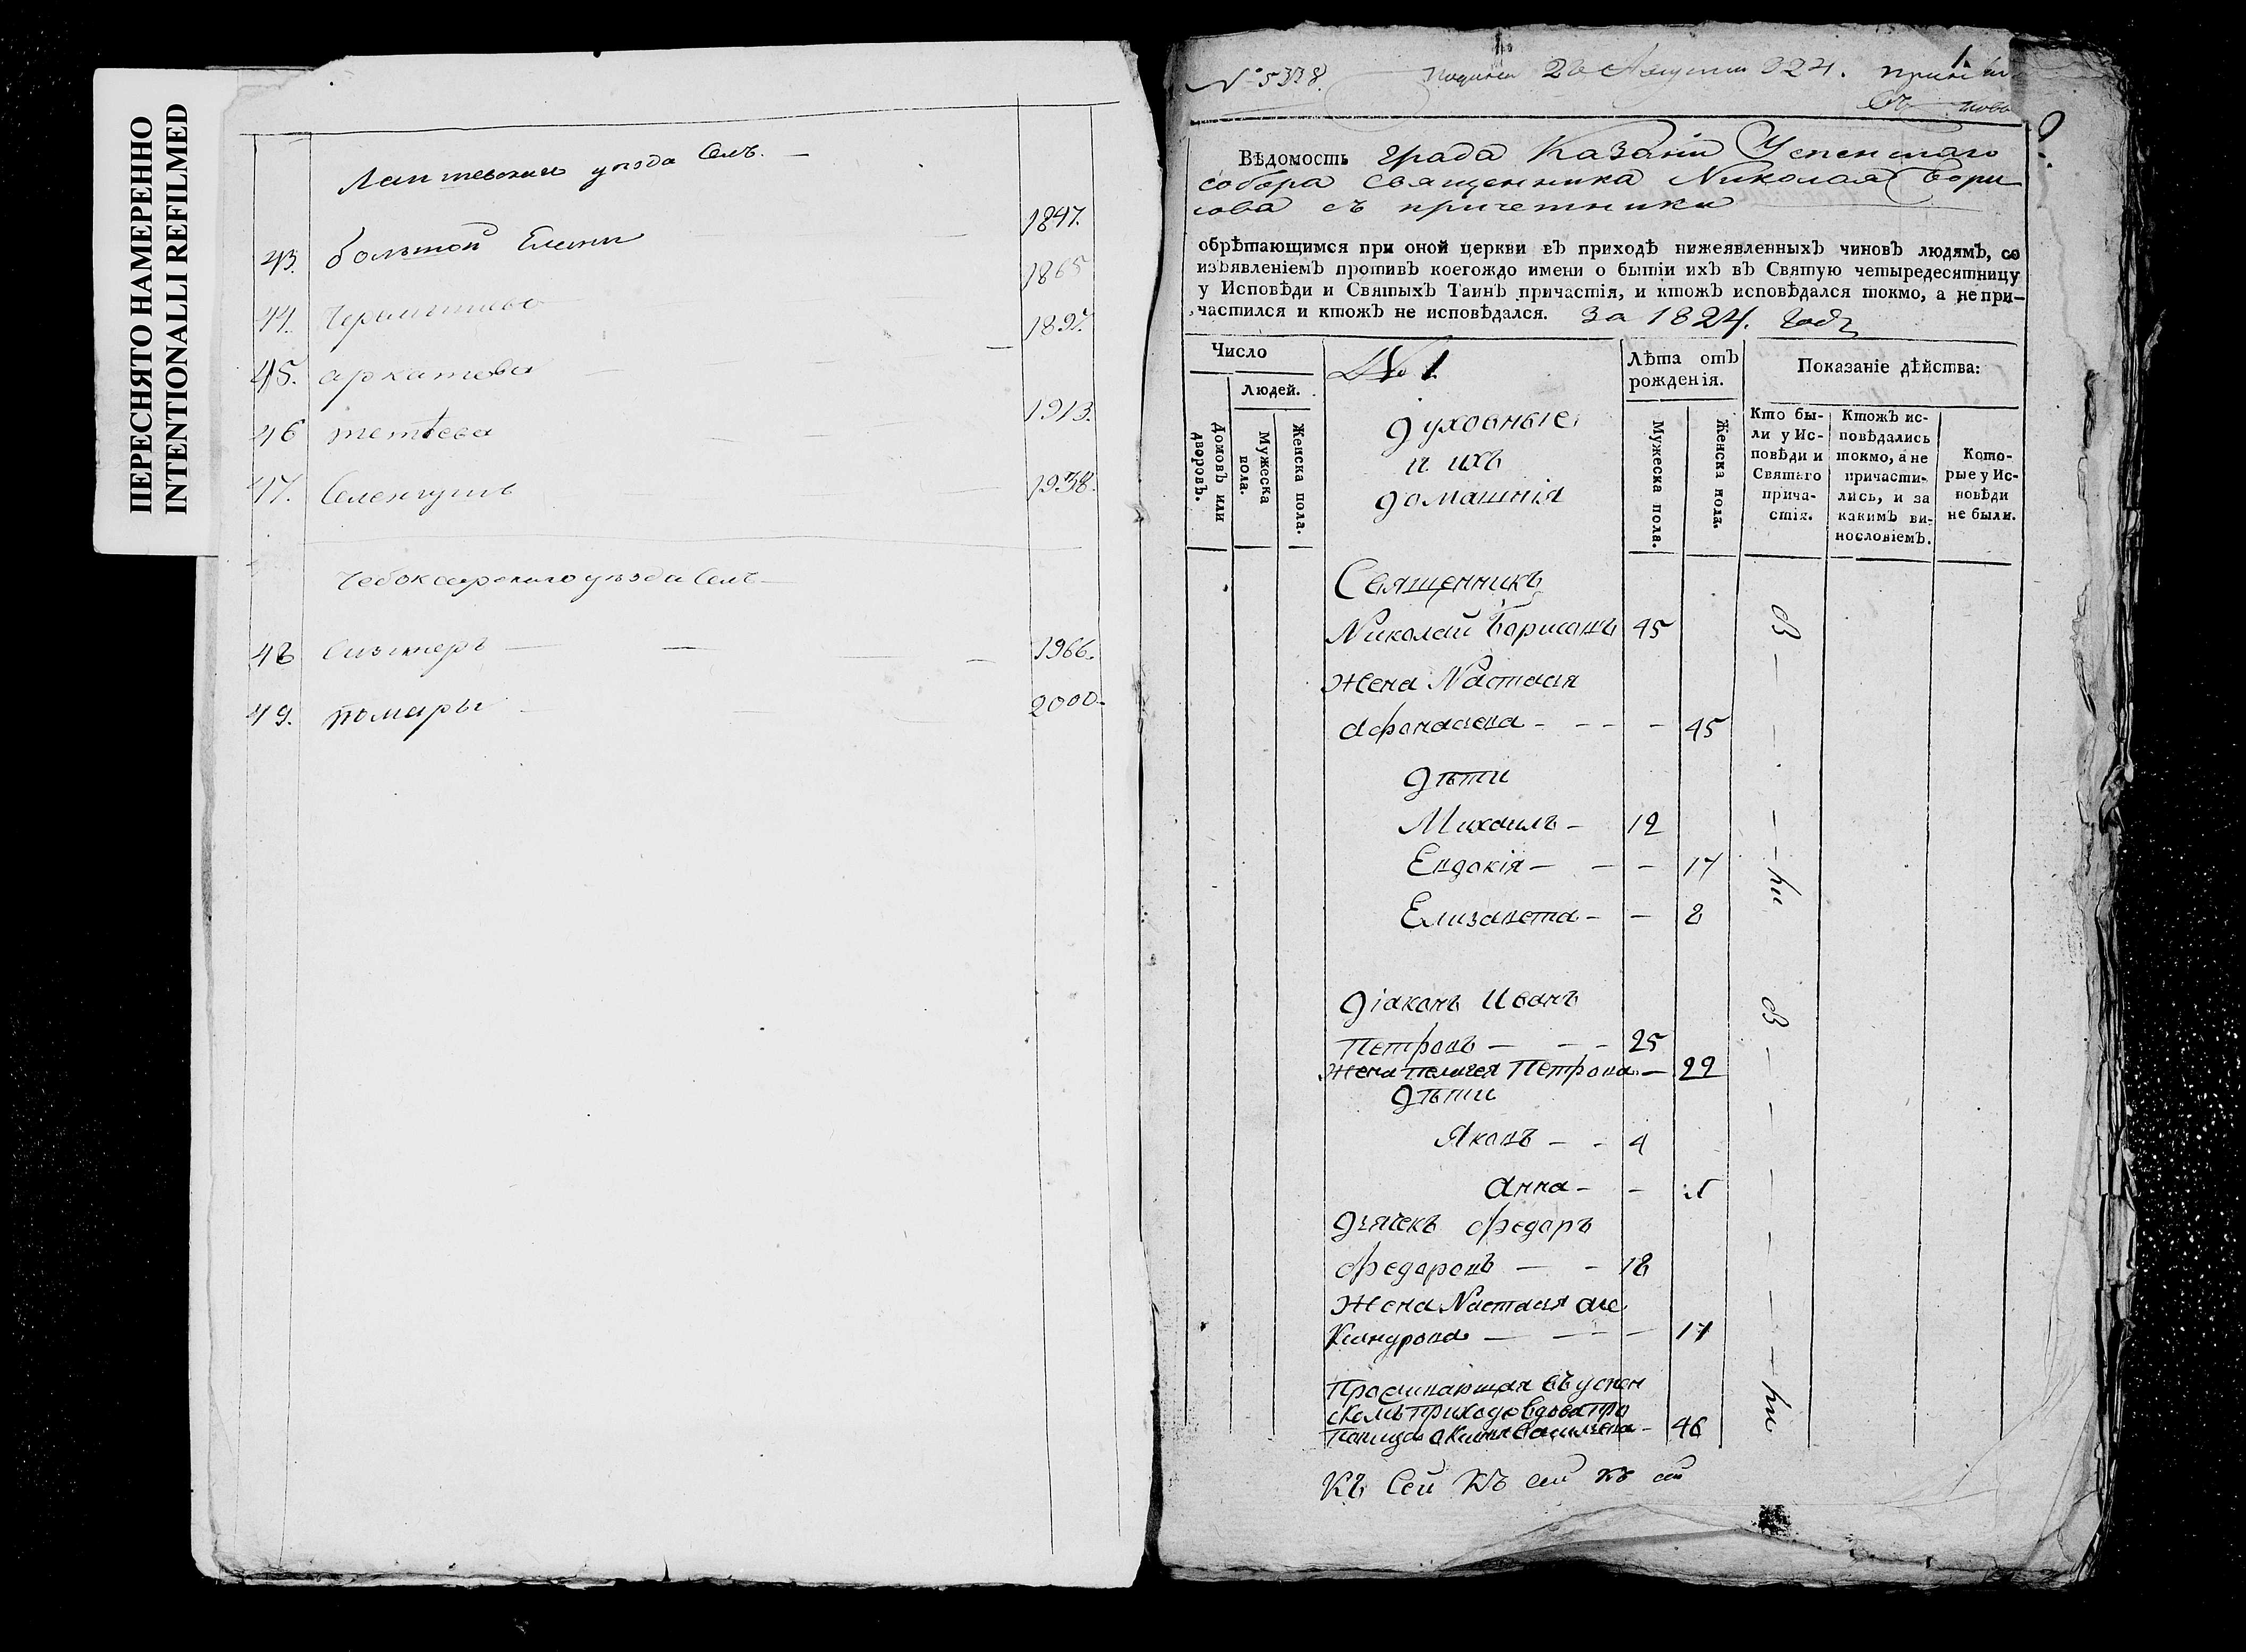 ПЕРЕСНЯТО НАМЕРЕННО
INTENTIONALLI REFILMED
Лаишевскаго уезда Селъ. —
1847.
43. большой Елани
1865
44.
1897.
45. аркатова —
1913.
46 тетѣева
47. Селенгушъ 1938.
Чебоксарскаго уезда Селъ —
48 Сизьмеръ — 1966.
49. помары 2000.
№ 5338. 26 Августа 824.
1.
Вѣдомость града Казани Успенскаго
собора священника Николая Бори
сова съ причетники
обрѣтающимся при оной церкви въ приходѣ нижеявленныхъ чиновъ людямъ, со
изъявленіемъ противъ коегождо имени о бытіи ихъ въ Святую четыредесятницу
у Исповѣди и Святыхъ Таинъ причастія, и ктожъ исповѣдался токмо, а не при-
частился и ктожъ не исповѣдался. За 1824. Годъ
Число
Людей.
Домовъ или дворовъ.
Мужеска пола.
Женска пола.
№ 1
духовные
и ихъ
домашнія
Лѣта отъ
рожденія.
Мужеска пола.
Женска пола.
Показаніе дѣйства:
Кто бы-
ли у Ис-
повѣди и
Святаго
прича-
стія.
Ктожъ ис-
повѣдались
токмо, а не
причасти-
лись, и за
какимъ ви-
нословіемъ.
Кото-
рые у Ис-
повѣди
не были.
Священникъ
Николай Борисовъ 45
жена Настасья
Афонасьева - - - - 45
дѣти
Михаилъ - 12
Евдокія - - - 17
Елизавета - - 8
діаконъ Иванъ
Петровъ — - - 25
жена пелагея Петрова — 22
дѣти
Яковъ - - 4
Анна - -
дьячекъ Федоръ
Федоровъ — - 18
Жена Настасья Але
ксандрова — — - — 17
Проживающая въ успен
скомъ приходе вдова про
46
Къ Сей Къ сей къ сей